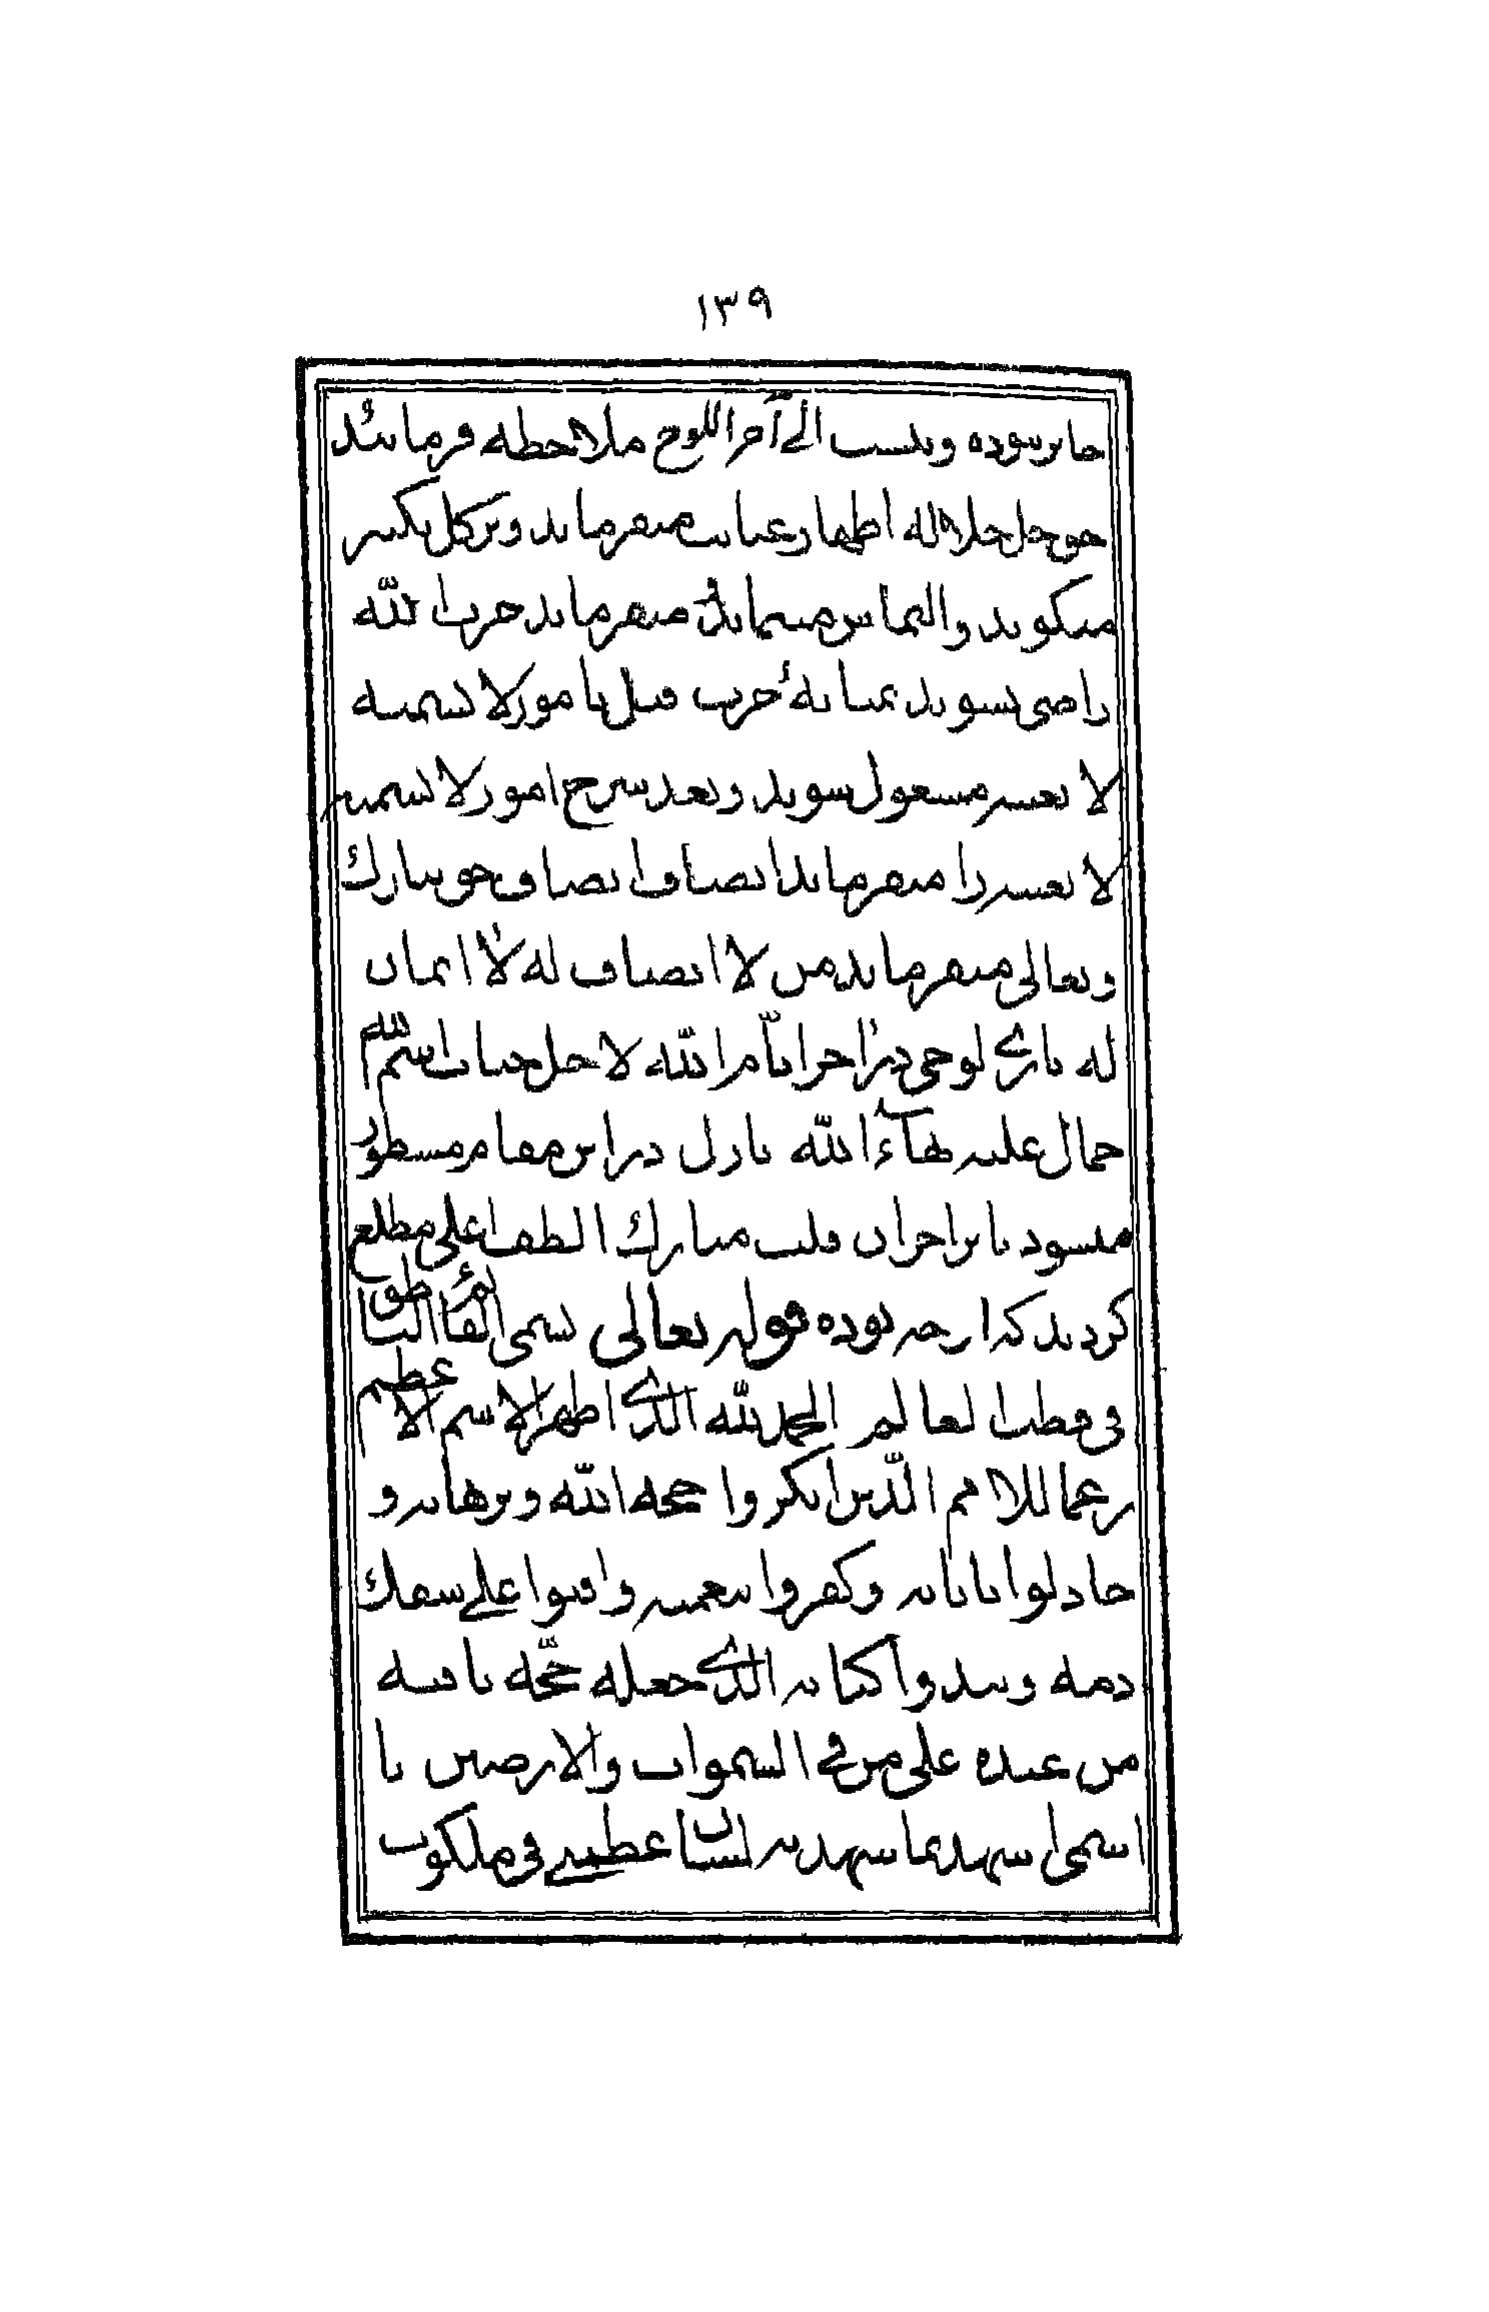 ١٣٩
جایز نبوده و نیست الی آخر اللوح ملاحظه فرمائید
حق جل جلاله اظهار عنایت میفرماید و بر کل تکبیر
میگوید و التماس مینماید و میفرماید حزب الله
راضی نشوید بمثابهٔ حزب قبل بامور لا تسمنه
لا تغنیه مشغول شوید و بعد شرح امور لا تسمنه
لا تغنیه را میفرماید انصاف انصاف حق تبارک
و تعالی میفرماید من لا انصاف له لا ایمان
له باری لوحی در احزان ایام الله لاجل جناب اسم الله
جمال علیه بهآء الله نازل در این مقام مسطور
میشود تا بر احزان قلب مبارک الطف اعلی مطلع
گردید که از چه بوده قوله تعالی بسمی القائم الناطق
فی قطب العالم الحمد لله الذی اظهر الاسم الاعظم
رغما للامم الّذین انکروا حجة الله و برهانه و
جادلوا بآیاته و کفروا بنعمته و افتوا علی سفک
دمه و نبذوا کتابه الذی جعله حجّة باقیه
من عنده علی من فی السموات و الارضین یا
اسمی اشهد بما شهد به لسان عظمتی فی ملکوت